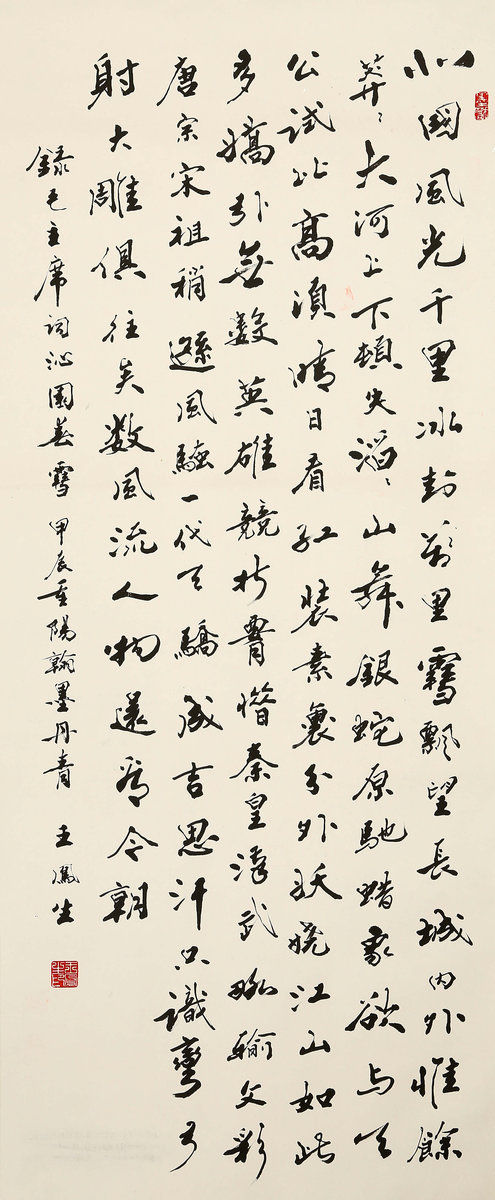 北國風光千里冰封萬里雪飄望長城内外惟餘
莽〻大河上下頓失滔〻山舞銀蛇原馳蜡象欲与天
公試比高須晴日看紅裝素裹分外妖嬈江山如此
多嬌引無數英雄競折腰惜秦皇漢武略輸文彩
唐宗宋祖稍遜風騷一代天驕成吉思汗只識彎弓
射大雕俱往矣数風流人物還看今朝
録毛主席詞沁園春雪 甲辰重陽翰墨丹青 王鳳生